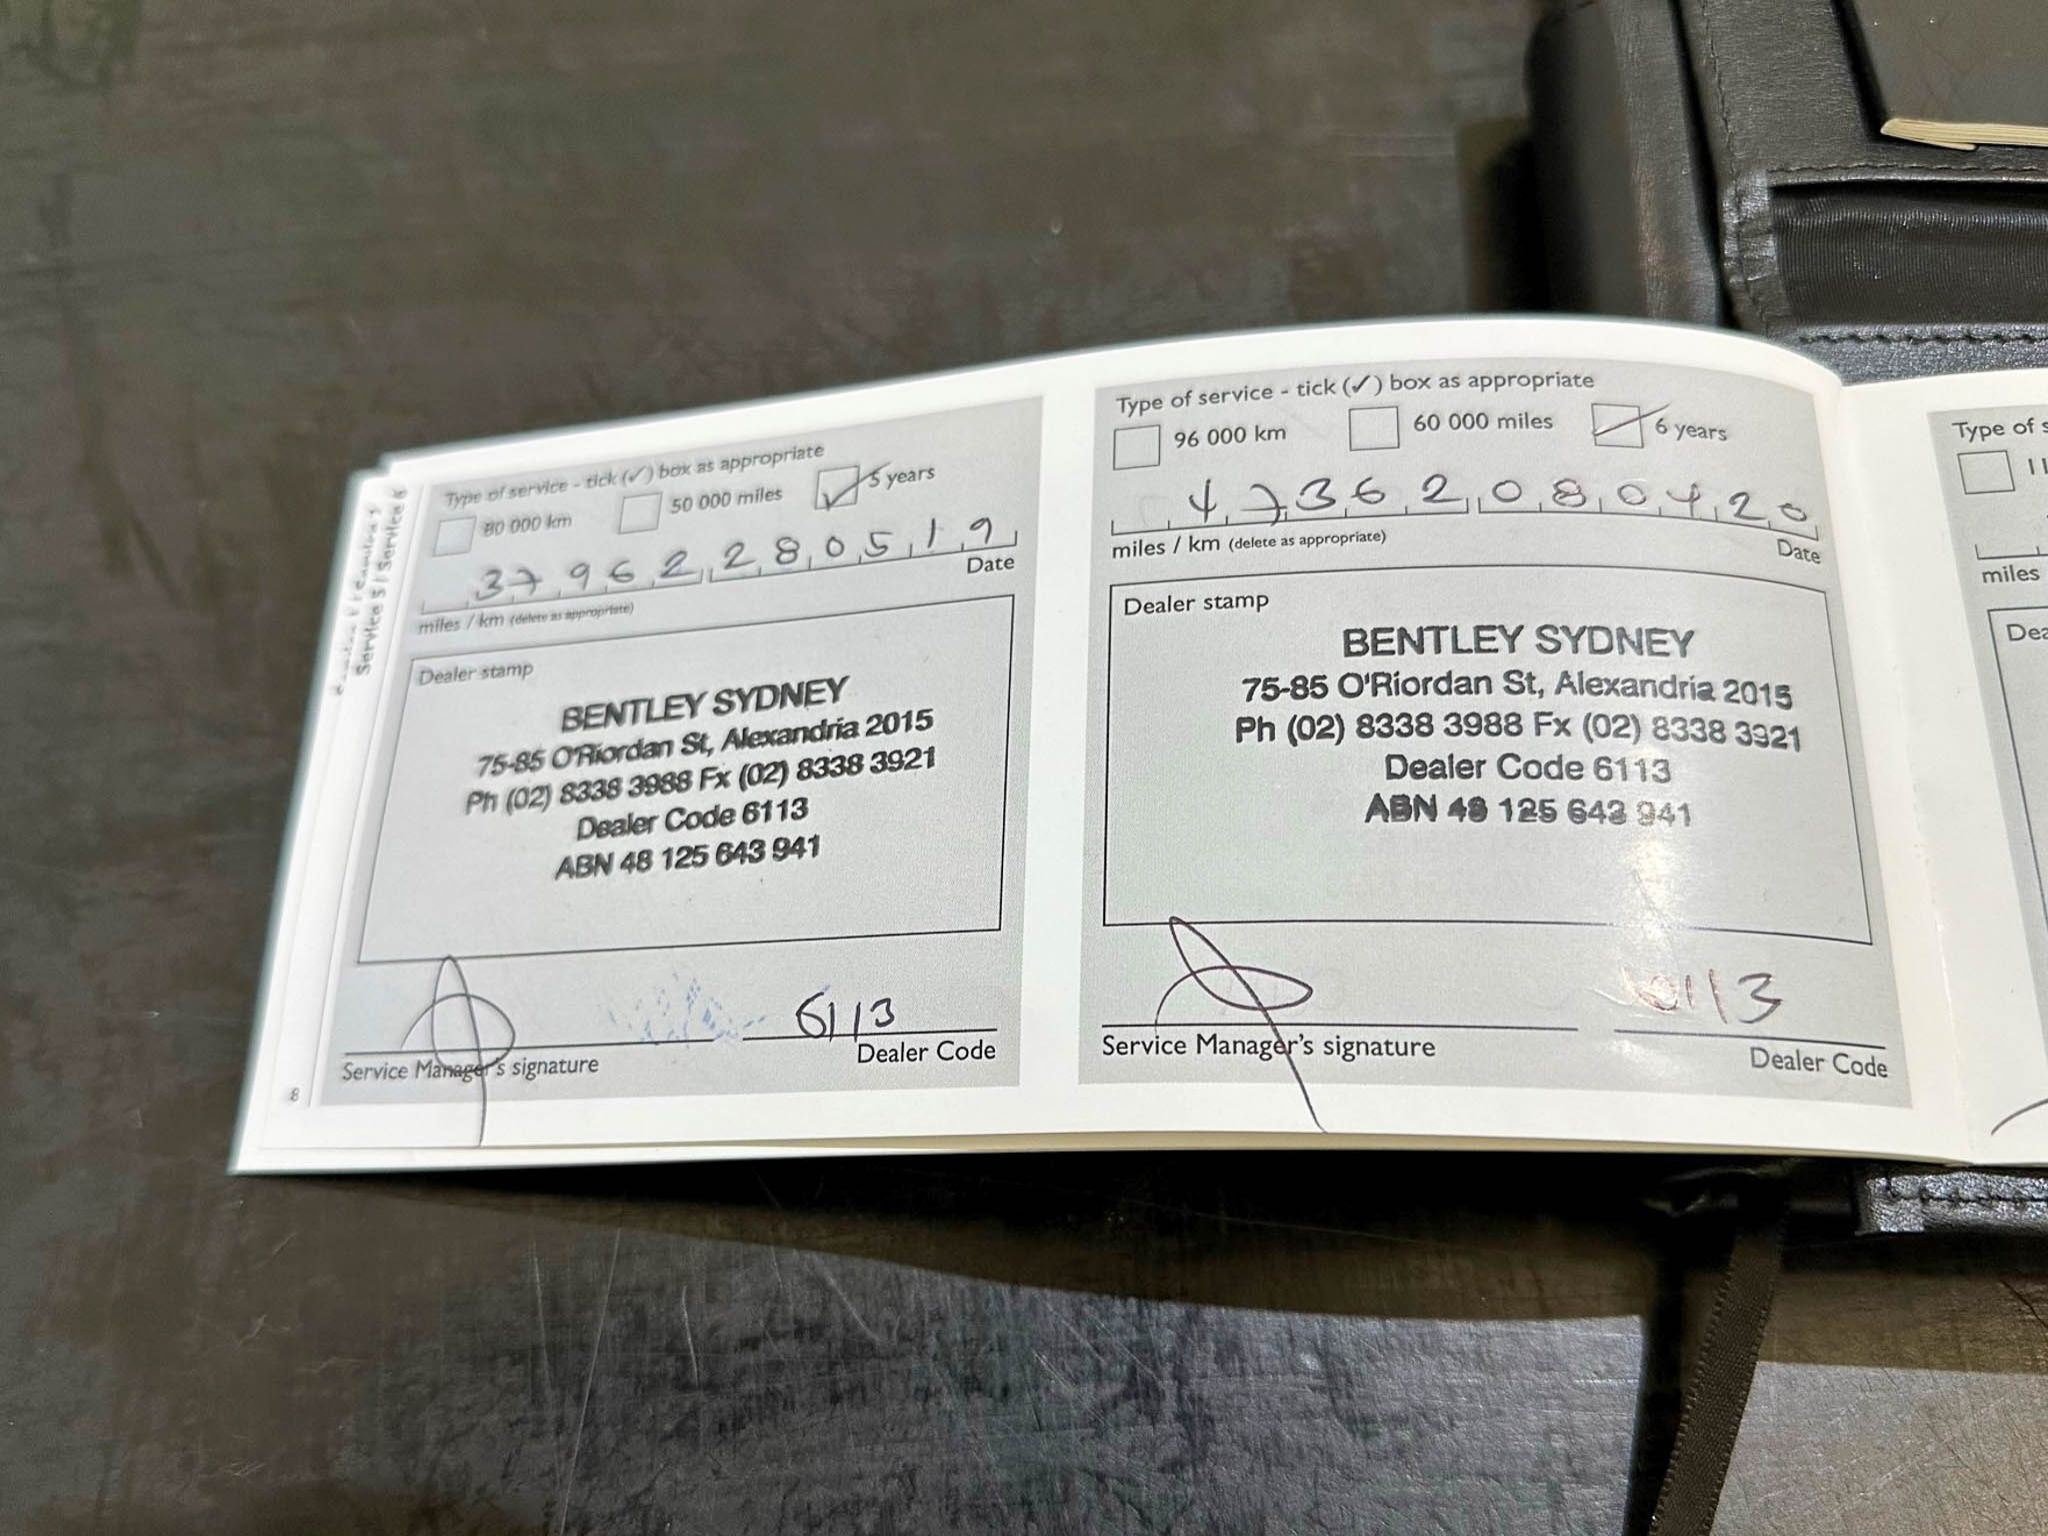 Service 5 / Service 6
Type of service - tick (✓) box as appropriate
80 000 km
50 000 miles
5 years
37962 280519
miles / km (delete as appropriate)
Date
Dealer stamp
BENTLEY SYDNEY
75-85 O'Riordan St, Alexandria 2015
Ph (02) 8338 3988 Fx (02) 8338 3921
Dealer Code 6113
ABN 48 125 643 941
6113
Service Manager's signature
Dealer Code
8
Type of service - tick (✓) box as appropriate
96 000 km
60 000 miles
6 years
47362 080420
miles / km (delete as appropriate)
Date
Dealer stamp
BENTLEY SYDNEY
75-85 O'Riordan St, Alexandria 2015
Ph (02) 8338 3988 Fx (02) 8338 3921
Dealer Code 6113
ABN 48 125 643 941
6113
Service Manager's signature
Dealer Code
Type of
miles